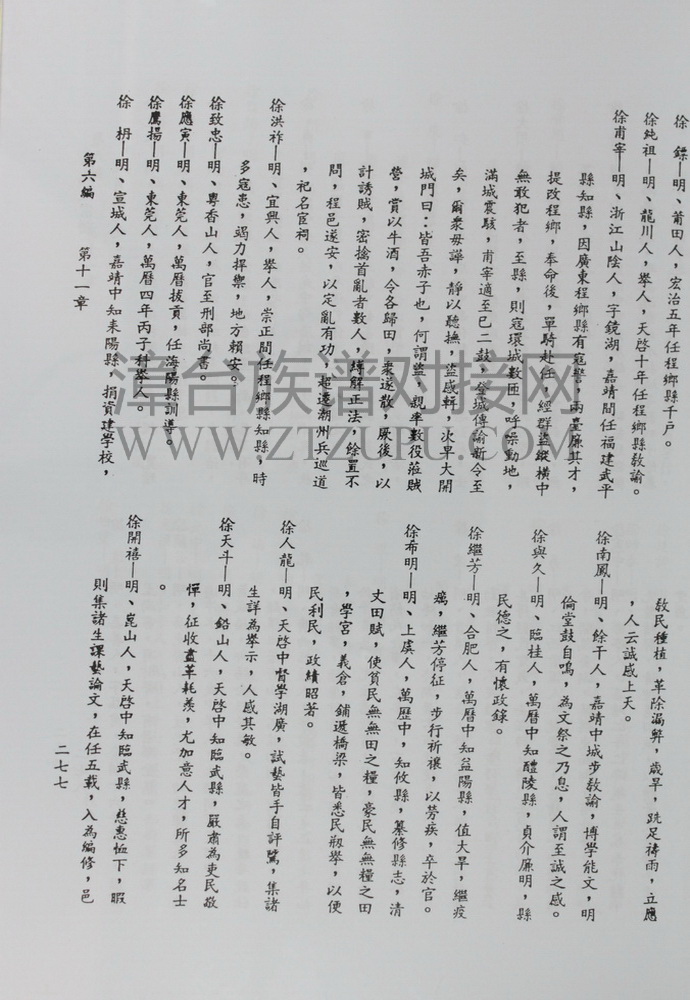 徐　鏢—明、莆田人，宏治五年任程鄉縣千戶。
徐純祖—明、龍川人，擧人，天啓十年任程鄉縣敎諭。
徐甫宰—明、浙江山陰人，字鏡湖，嘉靖間任福建武平
縣知縣，因廣東程鄉縣有寇警，兩臺廉其才，
提改程鄉，奉命後，單騎赴任，經群盜縱橫中
無敢犯者，至縣，則寇環城數匝，呼噪動地，
滿城震駭，甫宰適至已二鼓，登城傳諭新令至
矣，爾衆毋譁，靜以聽撫，盜感輯，次早大開
城門曰：皆吾赤子也，何謂盜，親率數役蒞賊
營，賞以牛酒，令各歸田，衆遂散，厥後，以
計誘賊，密擒首亂者數人，縛解正法，餘置不
問，程邑遂安，以定亂有功，超遷潮州兵巡道
，祀名宦祠。
徐洪祚—明、宜興人，擧人，崇正間任程鄉縣知縣，時
多寇患，竭力捍禦，地方賴安。
徐致忠—明、粵香山人，官至刑部尚書。
徐應寅—明、東莞人，萬曆拔貢，任海陽縣訓導。
徐鷹揚—明、東莞人，萬曆四年丙子科擧人。
徐　枬—明、宣城人，嘉靖中知耒陽縣，捐資建學校，
第六編　第十一章
敎民種植，革除漏弊，歲旱，跣足禱雨，立應
，人云誠感上天。
徐南鳳—明、餘干人，嘉靖中城步敎諭，博學能文，明
倫堂鼓自鳴，為文祭之乃息，人謂至誠之感。
徐與久—明、臨桂人，萬曆中知醴陵縣，貞介廉明，縣
民德之，有懷政錄。
徐繼芳—明、合肥人，萬曆中知益陽縣，值大旱，繼疫
癘，繼芳停征，步行祈禳，以勞疾，卒於官。
徐希明—明、上虞人，萬歷中，知攸縣，纂修縣志，清
丈田賦，使貧民無無田之糧，豪民無無糧之田
，學宮，義倉，鋪遞橋梁，皆悉民剏擧，以便
民利民，政績昭著。
徐人龍—明、天啓中督學湖廣，試藝皆手自評騭，集諸
生詳為擧示，人感其敏。
徐天斗—明、鉛山人，天啓中知臨武縣，嚴肅為吏民敬
憚，征收盡革耗羨，尤加意人才，所多知名士
。
徐開禧—明、崑山人，天啓中知臨武縣，慈惠恤下，暇
則集諸生課藝論文，在任五載，入為編修，邑
二七七
漳台族谱对接网
WWW.ZTZUPU.COM